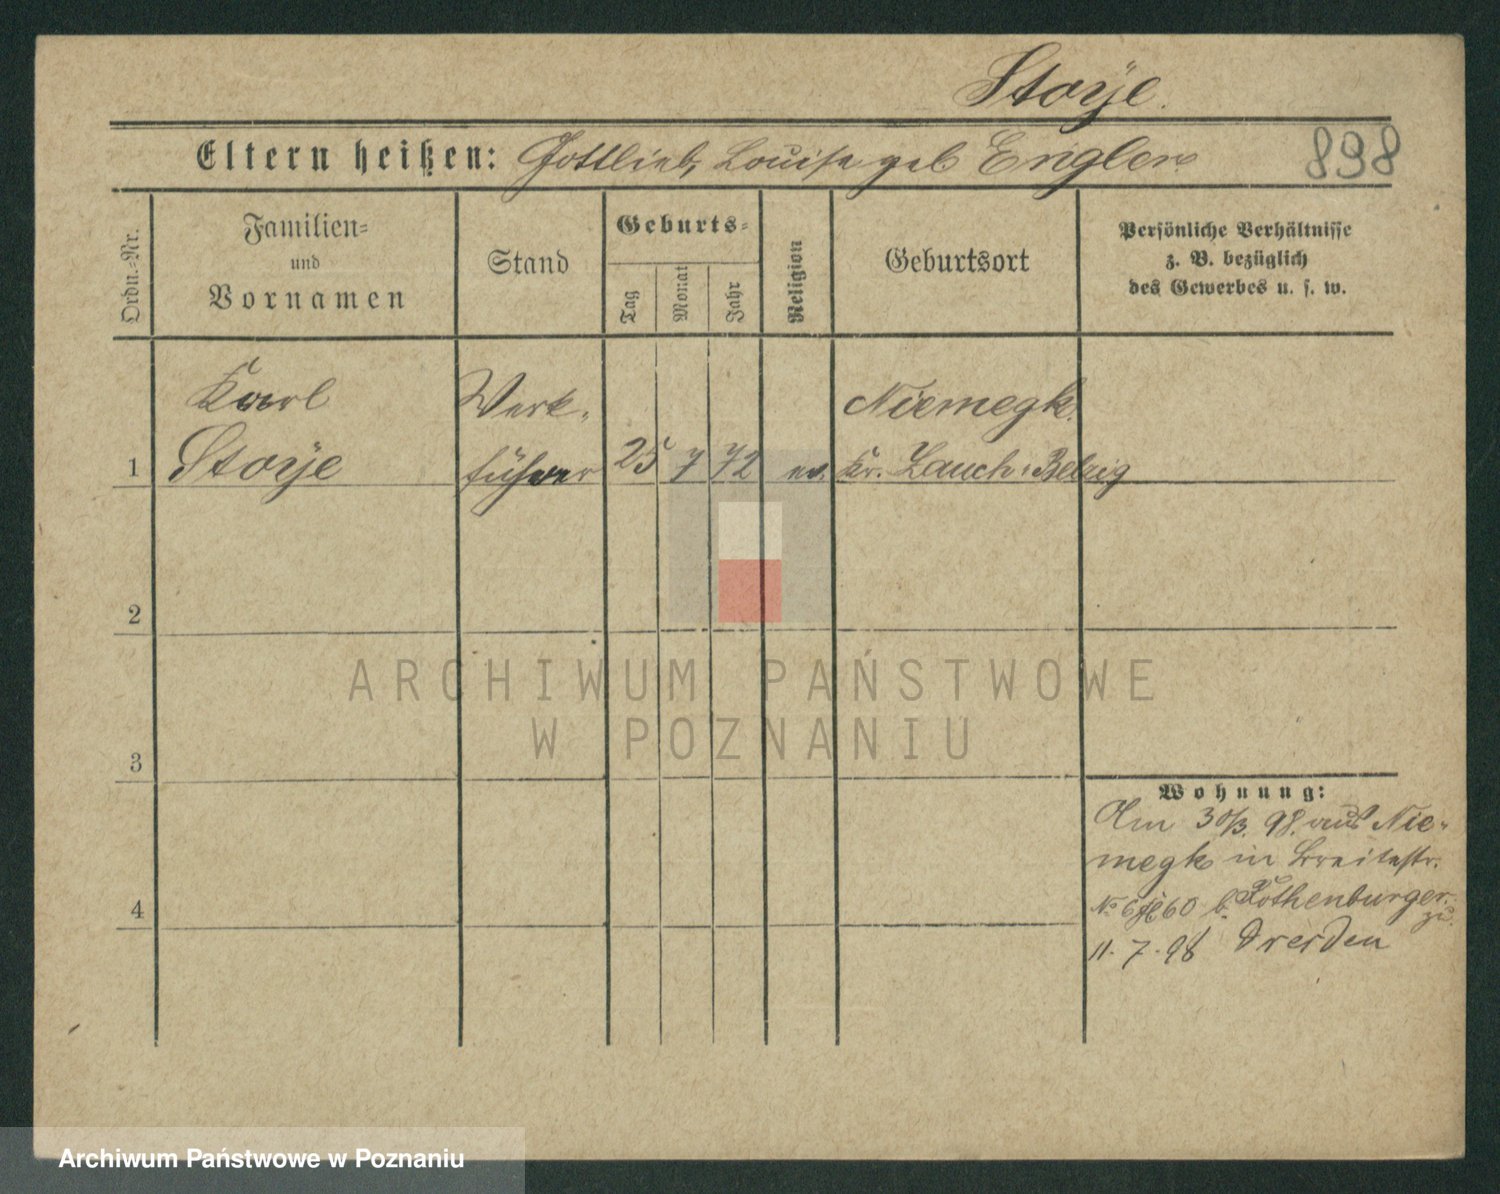 Stoÿe.
Eltern heißen: Gottlieb, Louise geb Engler
898
Ordn.-Nr.
Familien-
und
Vornamen
Stand
Geburts-
Tag
Monat
Jahr
Religion
Geburtsort
Persönliche Verhältnisse
z. B. bezüglich
des Gewerbes u. s. w.
Karl
Werk-
Niemegk.
1
Stoÿe
führer
25
7
72
ev.
Kr. Zauch-Belzig
2
ARCHIWUM PAŃSTWOWE
W POZNANIU
3
Wohnung:
Am 30/3. 98. aus Nie-
megk in Breitestr.
60 b. Rothenburger.
zu.
4
11. 7. 98 Dresden
Archiwum Państwowe w Poznaniu